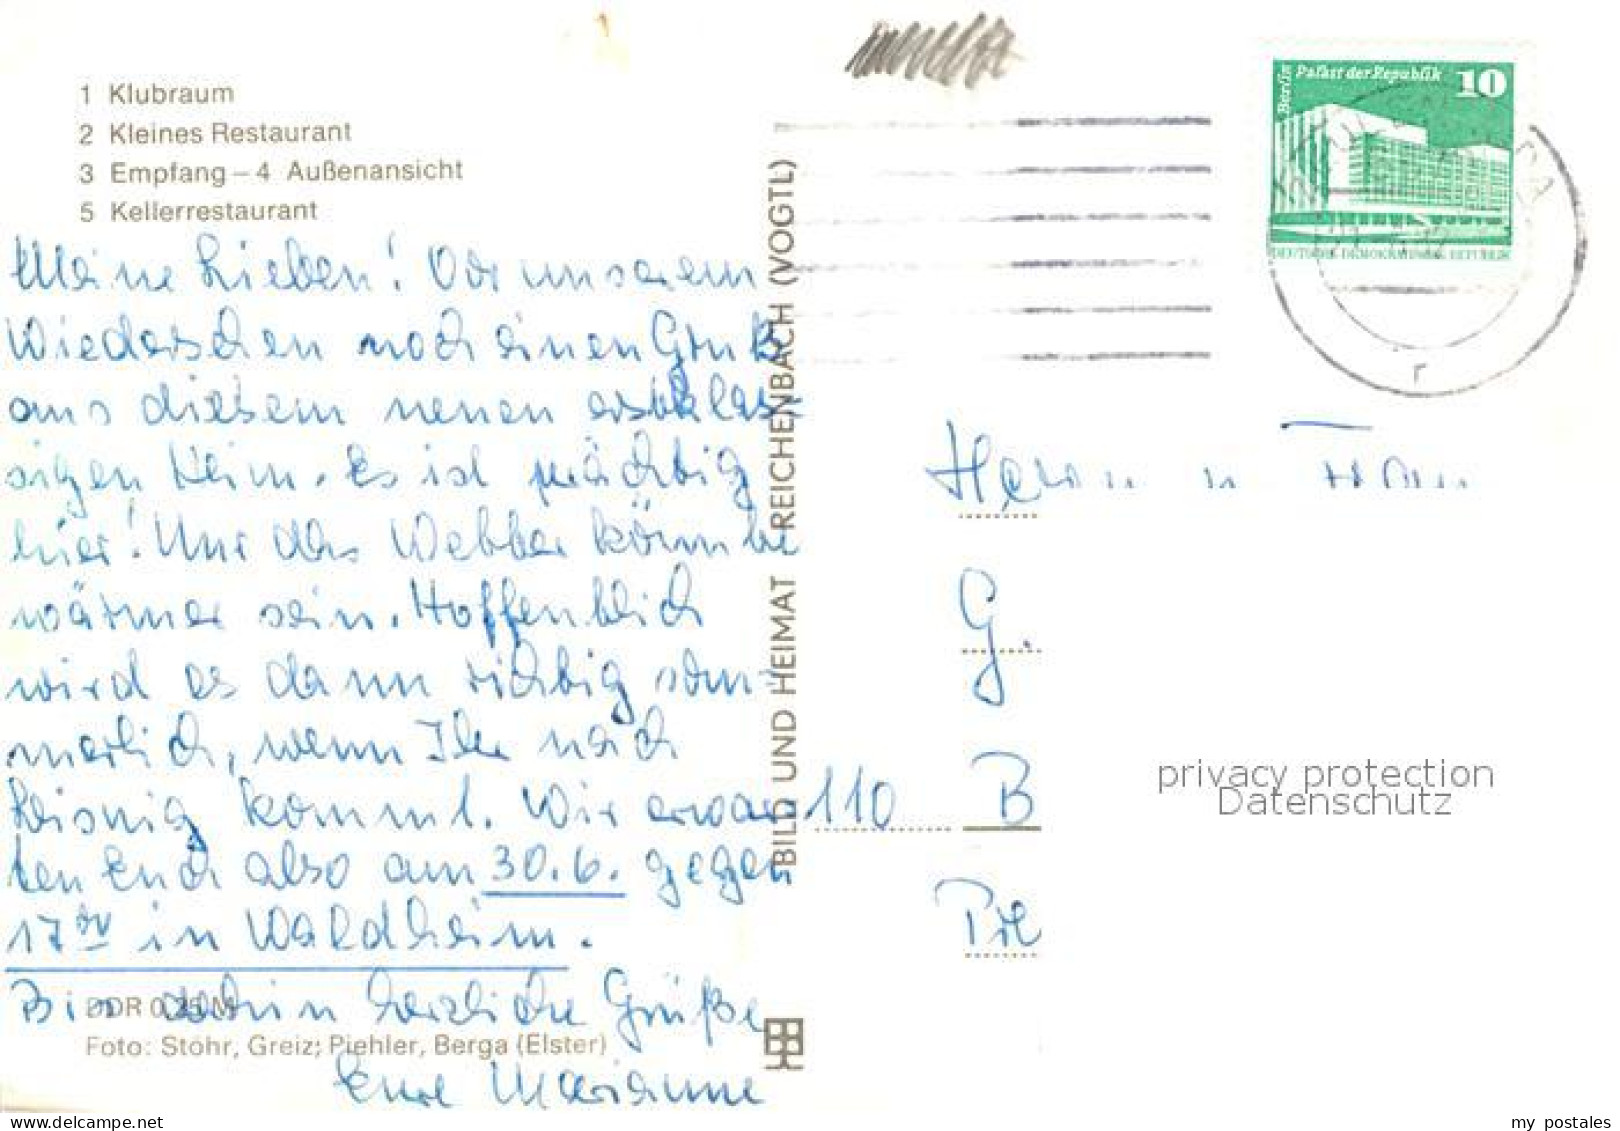 1 Klubraum
2 Kleines Restaurant
3 Empfang – 4 Außenansicht
5 Kellerrestaurant
Meine Lieben! Vor unserem
Wiedersehen noch einen Gruß
aus diesem neuen erstklas-
sigen Heim. Es ist prächtig
hier! Nur das Wetter könnte
wärmer sein. Hoffentlich
wird es dann richtig som-
merlich, wenn Ihr nach
Leisnig kommt. Wir erwar-
ten Euch also am 30.6. gegen
17 in Waldheim.
Bis dahin herzliche Grüße
Eure Marianne
DDR 0,25 M
Foto: Stöhr, Greiz; Piehler, Berga (Elster)
BILD UND HEIMAT REICHENBACH (VOGTL)
Berlin Palast der Republik 10
DEUTSCHE DEMOKRATISCHE REPUBLIK
r
Herrn u. Frau
G.
110 B
privacy protection
Datenschutz
my postales